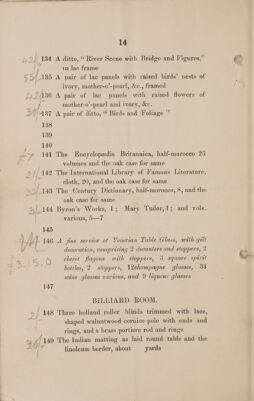 14
42/- 134 A ditto, "River Scene with Bridge and Figures,"
in lac frame
55/- 135 A pair of lac panels with raised birds' nests of
ivory, mother-o'-pearl, &c., framed
42/- 136 A pair of lac panels with raised flowers of
mother-o'-pearl and ivory, &c.
137 A pair of ditto, "Birds and Foliage"
138
139
140
£7 141 The Encyclopædia Britannica, half-morocco 25
volumes and the oak case for same
142 The International Library of Famous Literature,
cloth, 20, and the oak case for same
143 The Century Dictionary, half-morocco, 8, and the
oak case for same
144 Byron's Works, 1; Mary Tudor, 1; and vols.
various, 5—7
145
146 A fine service of Venetian Table Glass, with gilt
decoration, comprising 2 decanters and stoppers, 2
claret flagons with stoppers, 3 square spirit
£3.15.0 bottles, 2 stoppers, 12 champagne glasses, 34
wine glasses various, and 9 liqueur glasses
147
BILLIARD ROOM.
2/- 148 Three holland roller blinds trimmed with lace,
shaped walnutwood cornice pole with ends and
rings, and a brass portiere rod and rings
149 The Indian matting as laid round table and the
linoleum border, about yards